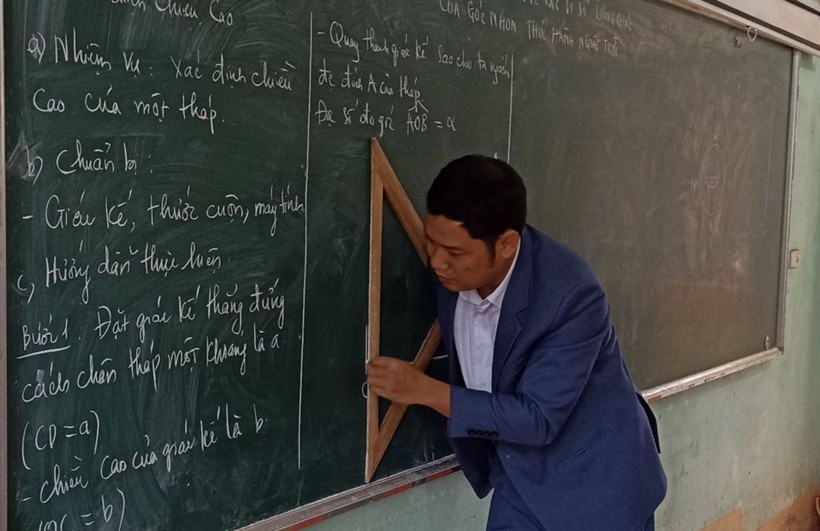 định Chiều Cao
a) Nhiệm vụ: Xác định chiều
cao của một tháp.
b) Chuẩn bị:
- Giác kế, thước cuộn, máy tính
c, Hướng dẫn thực hiện
Bước 1. Đặt giác kế thẳng đứng
cách chân tháp một khoảng là a
(CD = a)
- chiều cao của giác kế là b
(OC = b)
- Quay thanh giác kế sao cho ta ngắm
đỉnh A của tháp
Đọ số đo góc AOB = α
CỦA GÓC NHỌN THỰC HÀNH NGOÀI TRỜI